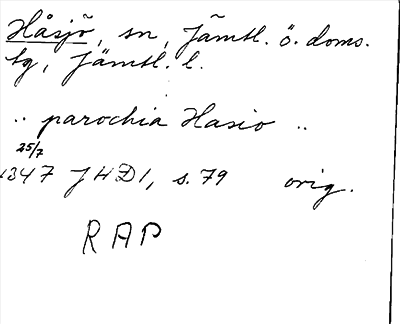 Håsjö, sn, Jämtl. ö. doms.
tg, Jämtl. l.
.. parochia Hasio ..
25/7
1347 JHD1, s. 79 orig.
RAP